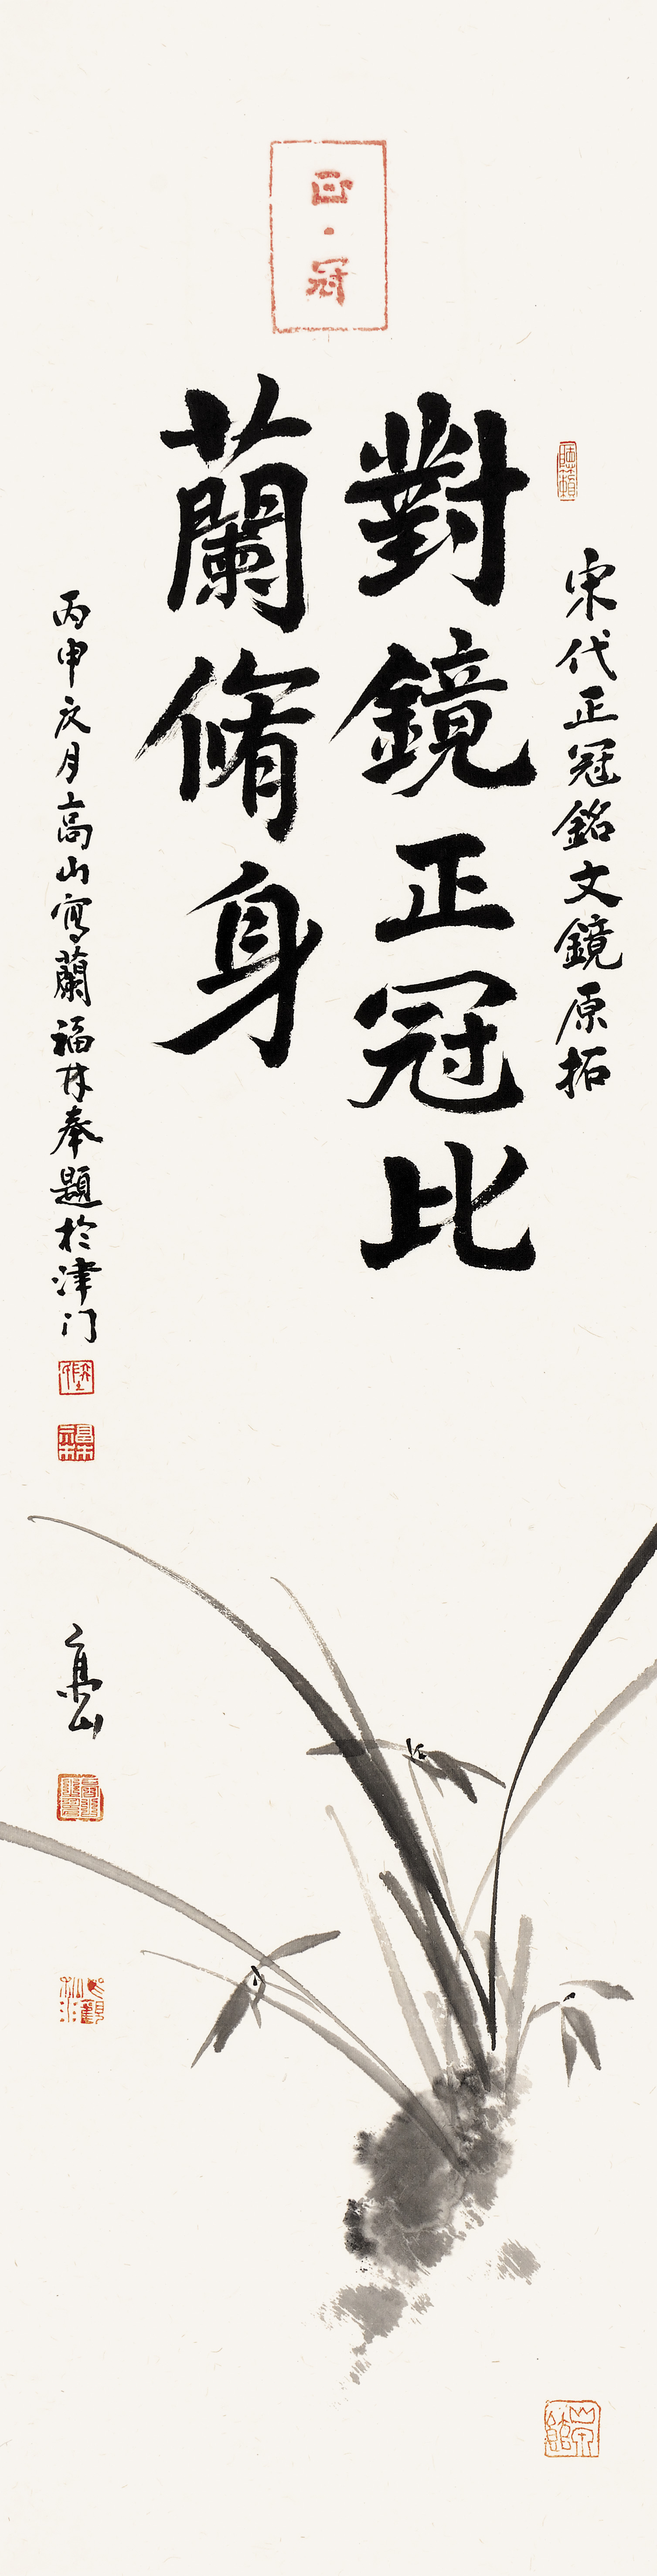 正·冠
宋代正冠銘文鏡原拓
對鏡正冠比
蘭脩身
丙申文月高山寫蘭福林奉題於津门
高山